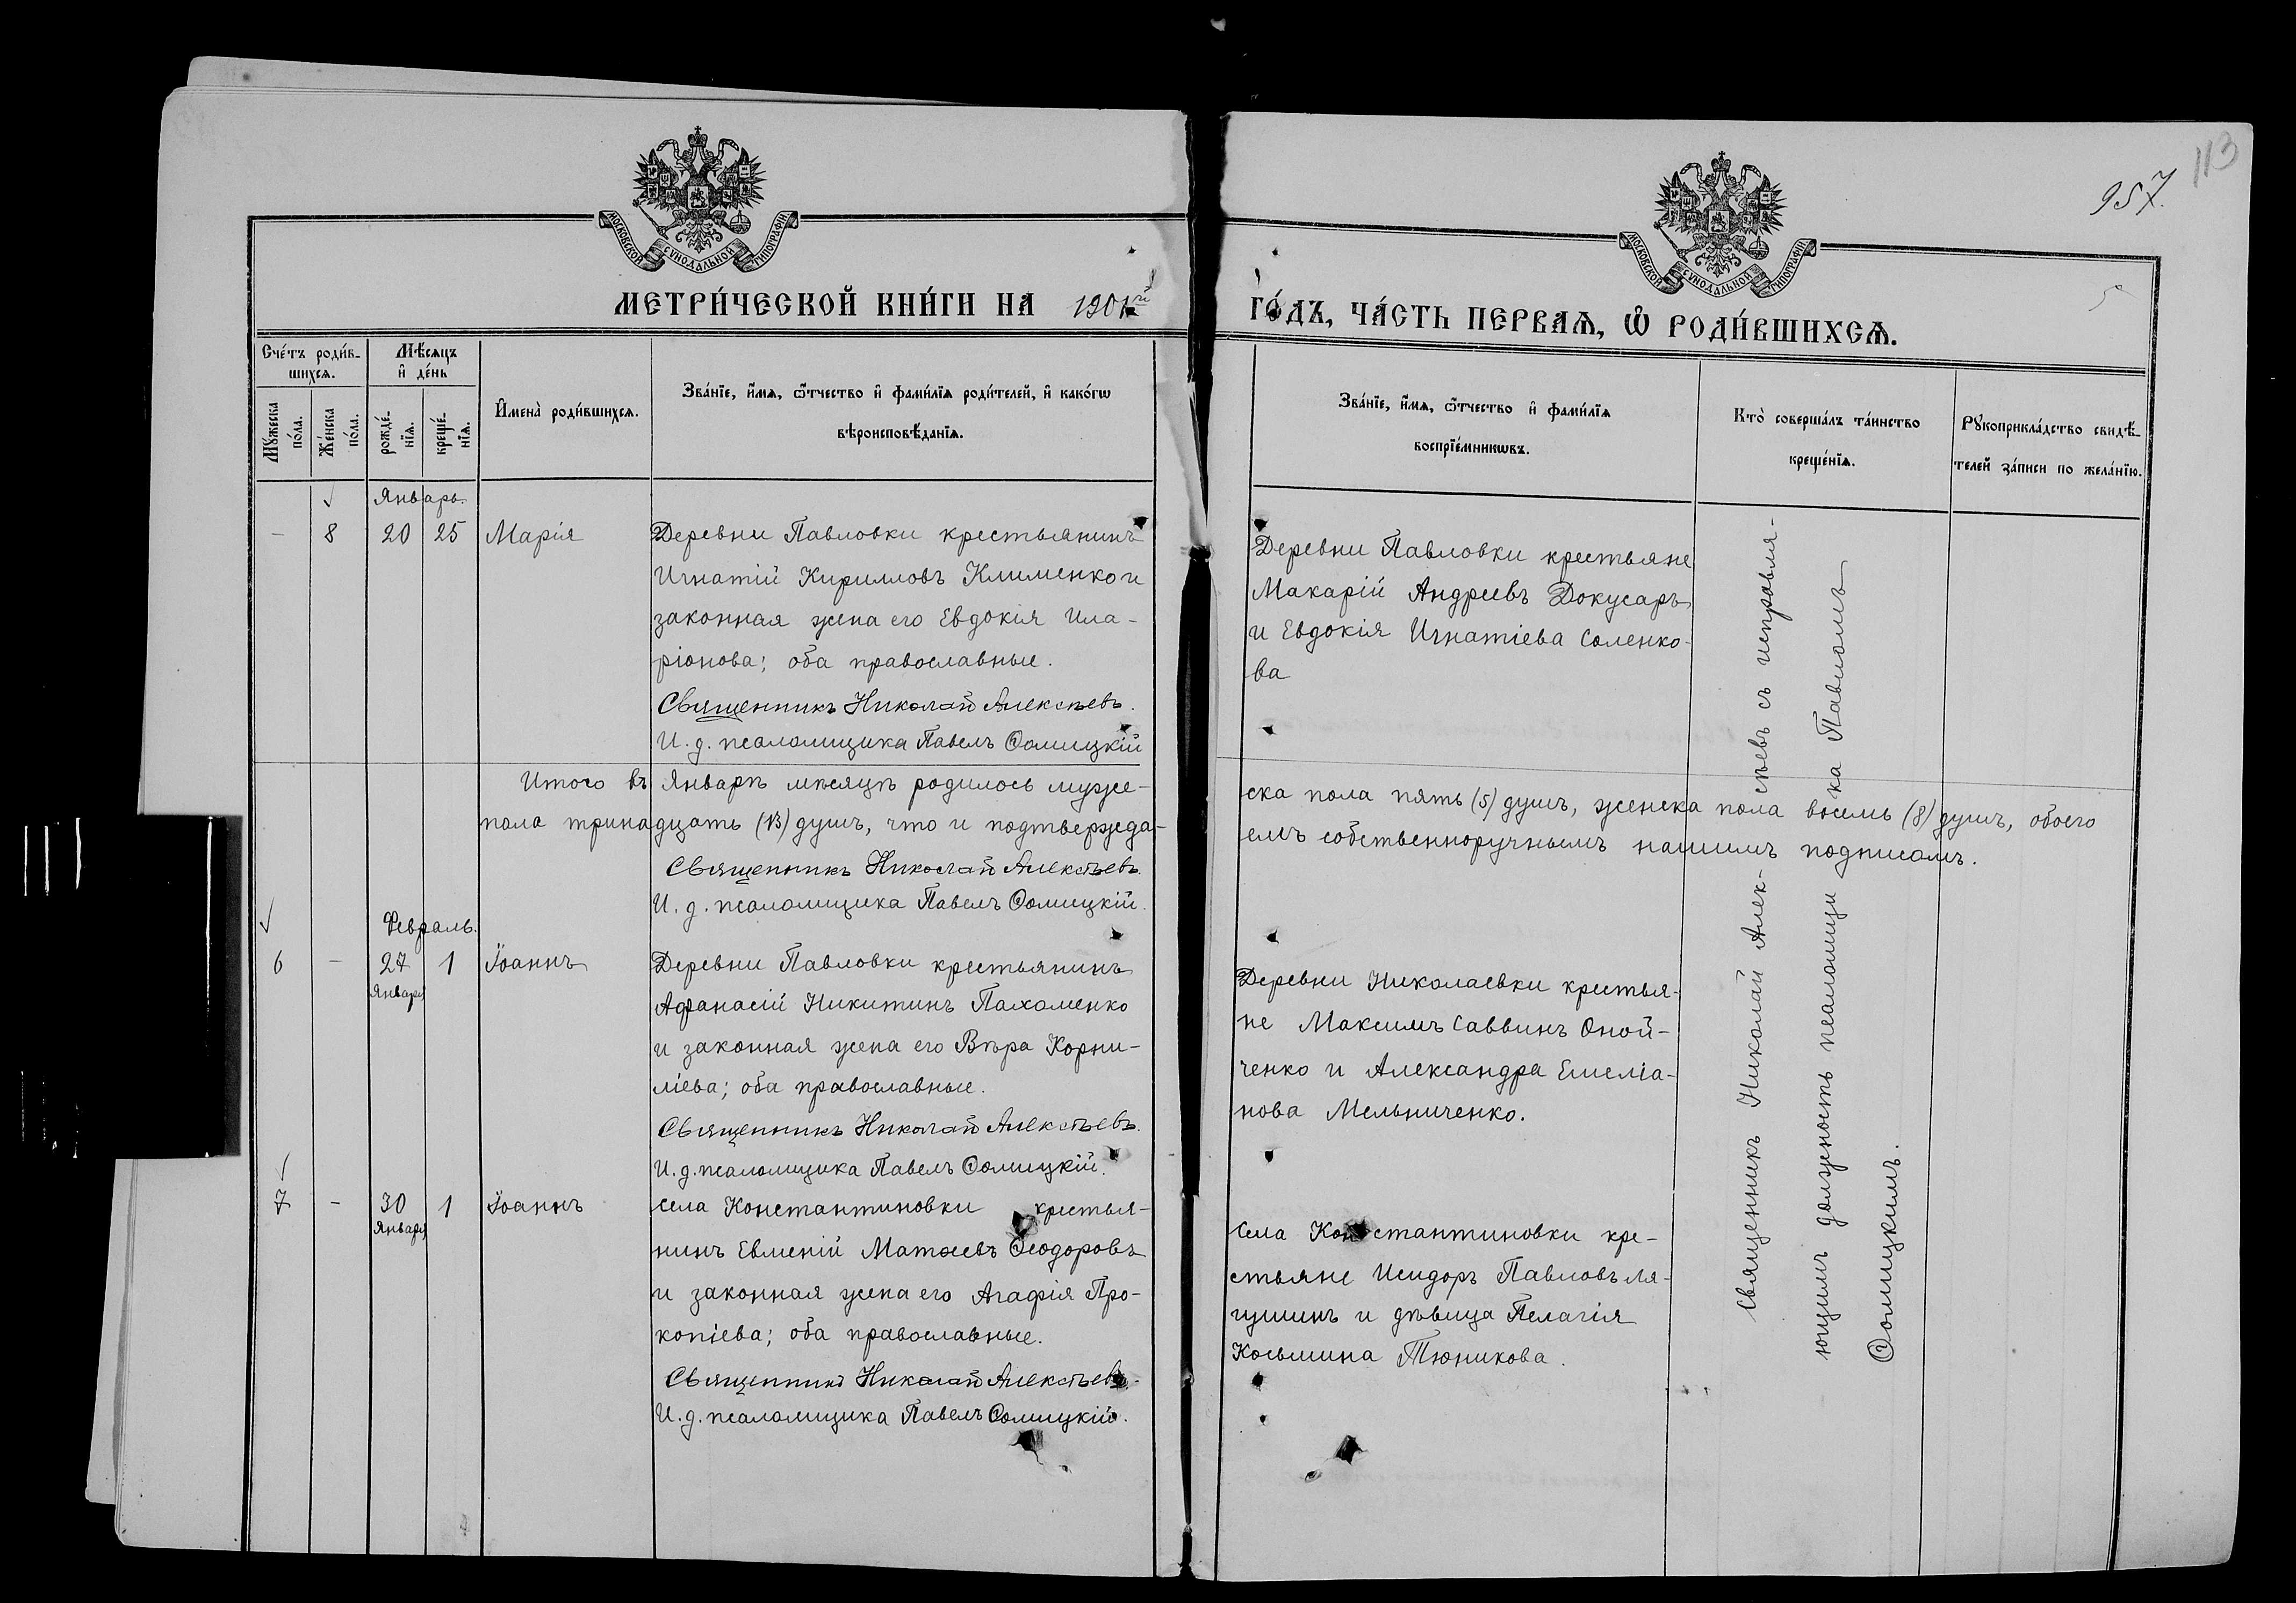 113
957.
5
МОСКОВСКОЙ СѴНОДАЛЬНОЙ ТИПОГРАФІИ
МОСКОВСКОЙ СѴНОДАЛЬНОЙ ТИПОГРАФІИ
МЕТРИ́ЧЕСКОЙ КНИ́ГИ НА 1901й
ГО́ДЪ, ЧА́СТЬ ПЕРВАѦ, Ѡ҆ РОДИ́ВШИХСѦ.
Сче́тъ роди́в-
шихсѧ.
Мѣ́сѧцъ
и҆ де́нь
Мꙋ́жеска
по́ла.
Же́нска
по́ла.
рожде́-
нїѧ.
креще́-
нїѧ.
И҆мена̀ роди́вшихсѧ.
Зва́нїе, и҆́мѧ, ѻ҆́тчество и҆ фами́лїѧ роди́телей, и҆ како́гѡ
вѣроисповѣ́данїѧ.
Зва́нїе, и҆́мѧ, ѻ҆́тчество и҆ фами́лїѧ
воспрїе́мникѡвъ.
Кто̀ соверша́лъ та́инство
креще́нїѧ.
Рꙋкоприкла́дство свидѣ́-
телей за́писи по жела́нїю.
Январь.
- 8 20 25 Марія
Деревни Павловки крестьянинъ
Игнатій Кирилловъ Клименко и
законная жена его Евдокія Ила-
ріонова; оба православные.
Священникъ Николай Алексѣевъ.
И. д. псаломщика Павелъ Ѳомицкій
Деревни Павловки крестьяне
Макарій Андреевъ Докусаръ
и Евдокія Игнатіева Соленко-
ва
Итого въ Январѣ мѣсяцѣ родилось муже-
ска пола пять (5) душъ, женска пола восемь (8) душъ, обоего
пола тринадцать (13) душъ, что и подтвержда-
емъ собственноручнымъ нашимъ подписомъ.
Священникъ Николай Алексѣевъ.
И. д. псаломщика Павелъ Ѳомицкій.
Февраль.
6 - 27 1 Іоаннъ
Января
Деревни Павловки крестьянинъ
Афанасій Никитинъ Пахоменко
и законная жена его Вѣра Корни-
ліева; оба православные.
Священникъ Николай Алексѣевъ.
И. д. псаломщика Павелъ Ѳомицкій.
Деревни Николаевки крестья-
не Максимъ Саввинъ Оной-
ченко и Александра Емеліа-
нова Мельниченко.
7 - 30 1 Іоаннъ
Января
Села Константиновки крестья-
нинъ Евменій Матѳеевъ Ѳеодоровъ
и законная жена его Агафія Про-
копіева; оба православные.
Священникъ Николай Алексѣевъ.
И. д. псаломщика Павелъ Ѳомицкій.
Села Константиновки кре-
стьяне Исидоръ Павловъ Ля-
гушинъ и дѣвица Пелагія
Косьмина Тюникова.
Священникъ Николай Алек-сѣевъ съ исправля-
ющимъ должность псаломщи-ка Павломъ
Ѳомицкимъ.